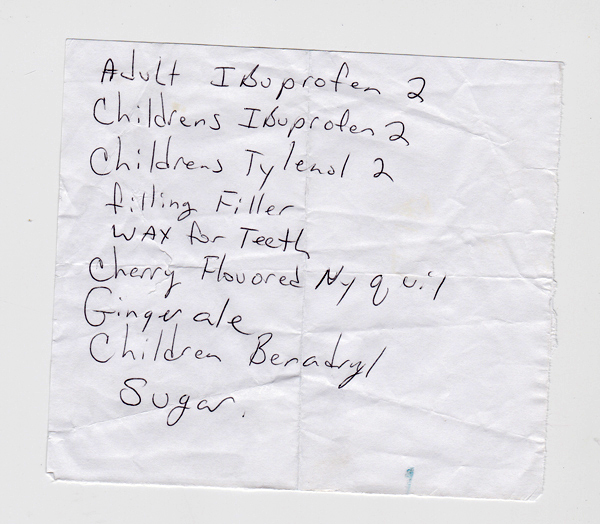 Adult Ibuprofen 2
Childrens Ibuprofen 2
Childrens Tylenol 2
filling Filler
WAX for Teeth
Cherry Flovored Nyquil
Ginger ale
Children Benadryl
Sugar.